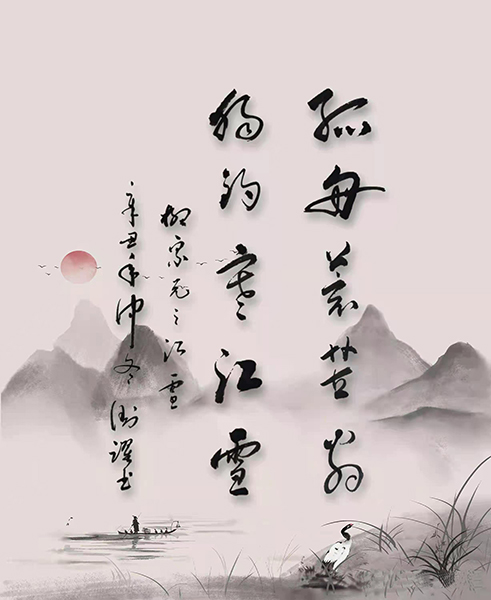 孤舟蓑笠翁
独钓寒江雪
柳宗元之江雪
辛丑年仲冬书